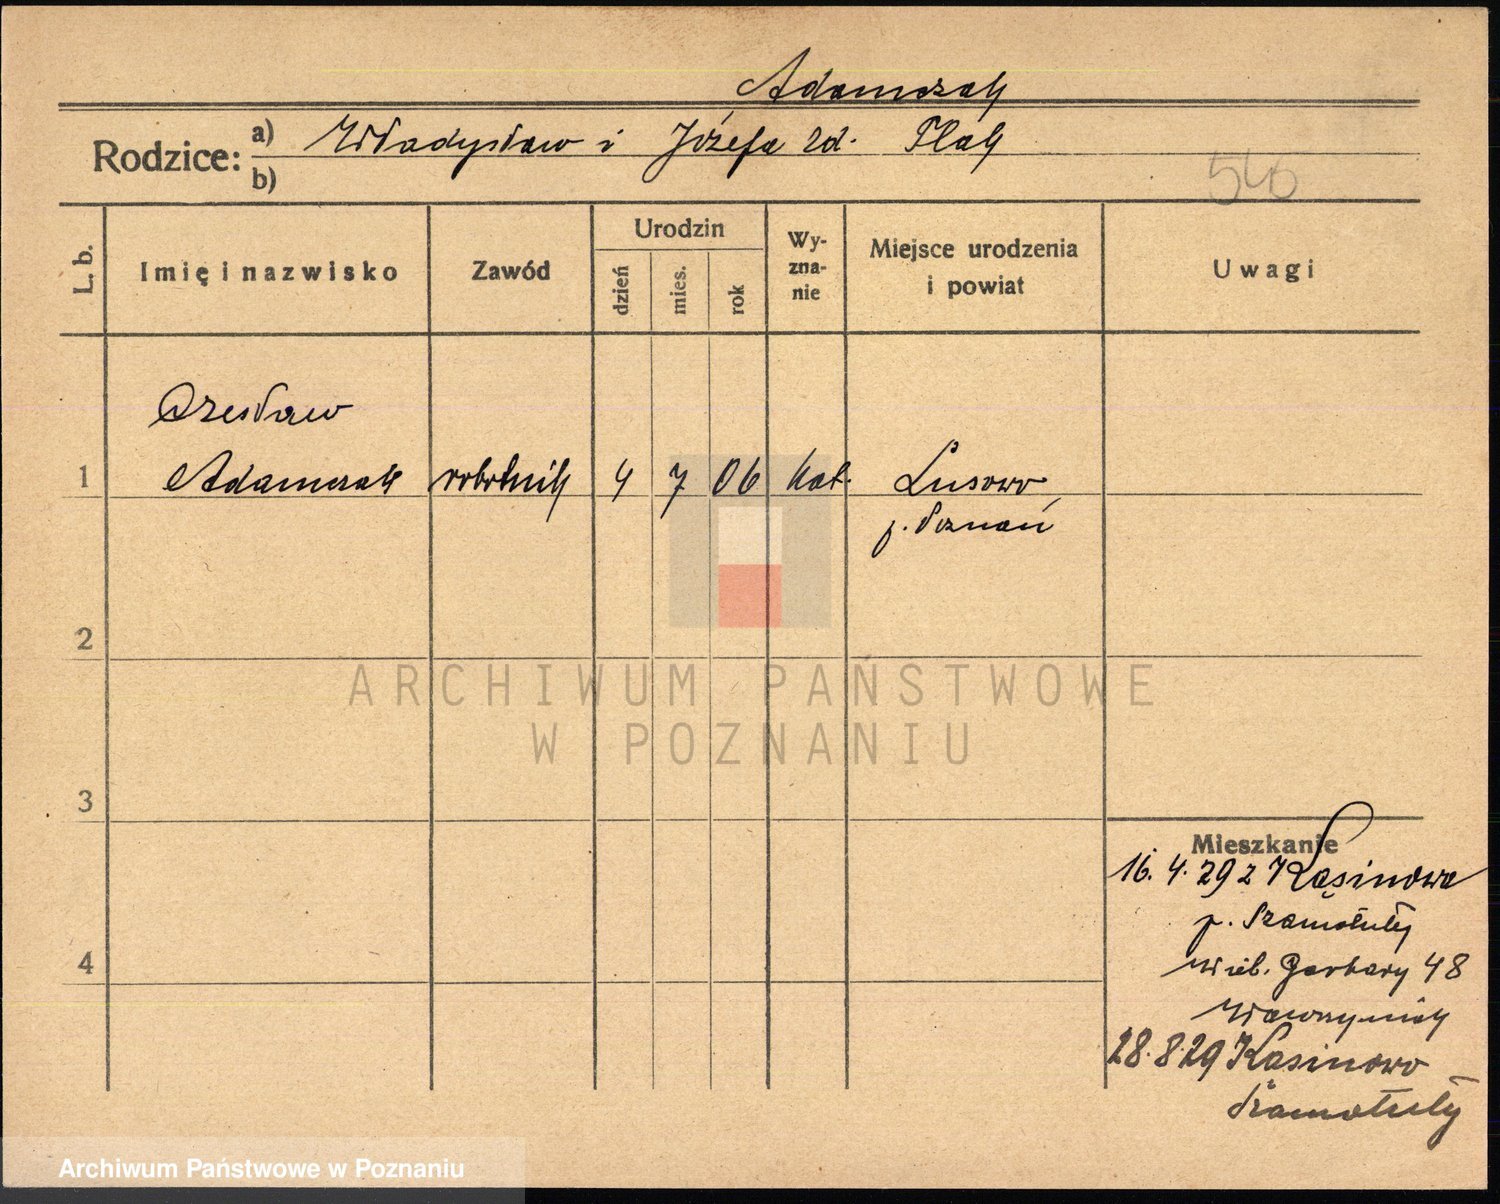 Adamczak
Rodzice: a) Władysław i Józefa zd. Ptak
b)
546
L. b. Imię i nazwisko Zawód Urodzin dzień mies. rok Wy-zna-nie Miejsce urodzenia i powiat Uwagi
Czesław
1 Adamczak robotnik 4 7 06 kat. Lusowo
p. Poznań
2
ARCHIWUM PAŃSTWOWE
W POZNANIU
3
Mieszkanie
16. 4. 29 z Kąsinowa
p. Szamotuły
Wiel. Garbary 48
4
Wawrzyniak
28. 8. 29 Kasinowo
Szamotuły
Archiwum Państwowe w Poznaniu